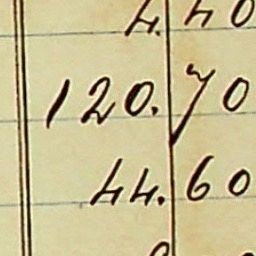 4.40
120.70
44.60